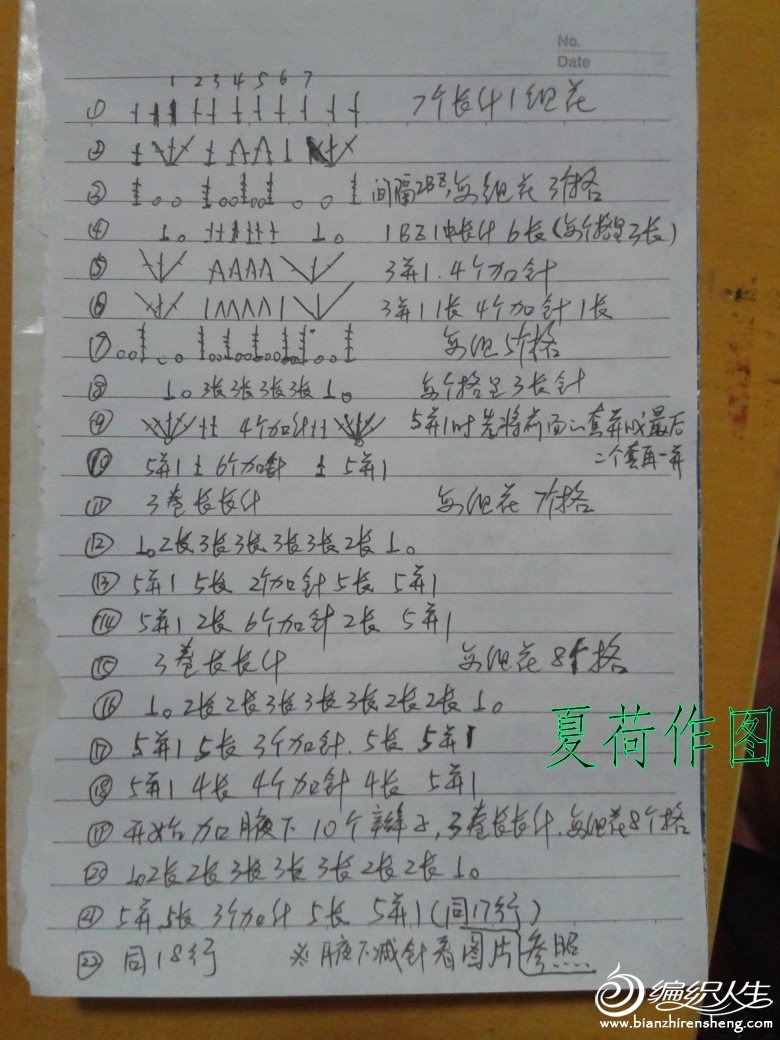 No.
Date
1 2 3 4 5 6 7
① 7个长针1组花
②
③ 间隔2BZ,每组花3格
④ 1BZ1中长针6长(每个格里3长)
⑤ 3并1.4个加针
⑥ 3并1 1长4个加针1长
⑦ 每组5格
⑧ 3长3长3长3长 每个格里3长针
⑨ 4个加针 5并1时先将前面 套并成最后
二个套再一并
⑩ 5并1 6个加针 5并1
⑪ 3卷长长针 每组花7格
⑫ 2长3长3长3长3长2长
⑬ 5并1 5长 2个加针 5长 5并1
⑭ 5并1 2长 6个加针 2长 5并1
⑮ 3卷长长针 每组花8个格
⑯ 2长2长3长3长3长2长2长
⑰ 5并1 5长 3个加针.5长 5并1
⑱ 5并1 4长 4个加针 4长 5并1
⑲ 开始加腋下10个辫子,3卷长长针.每组花8个格
⑳ 2长2长3长3长3长2长2长
㉑ 5并1 5长 3个加针 5长 5并1(同17行)
㉒ 同18行 ※腋下减针看图片参照
夏荷作图
编织人生
www.bianzhirensheng.com